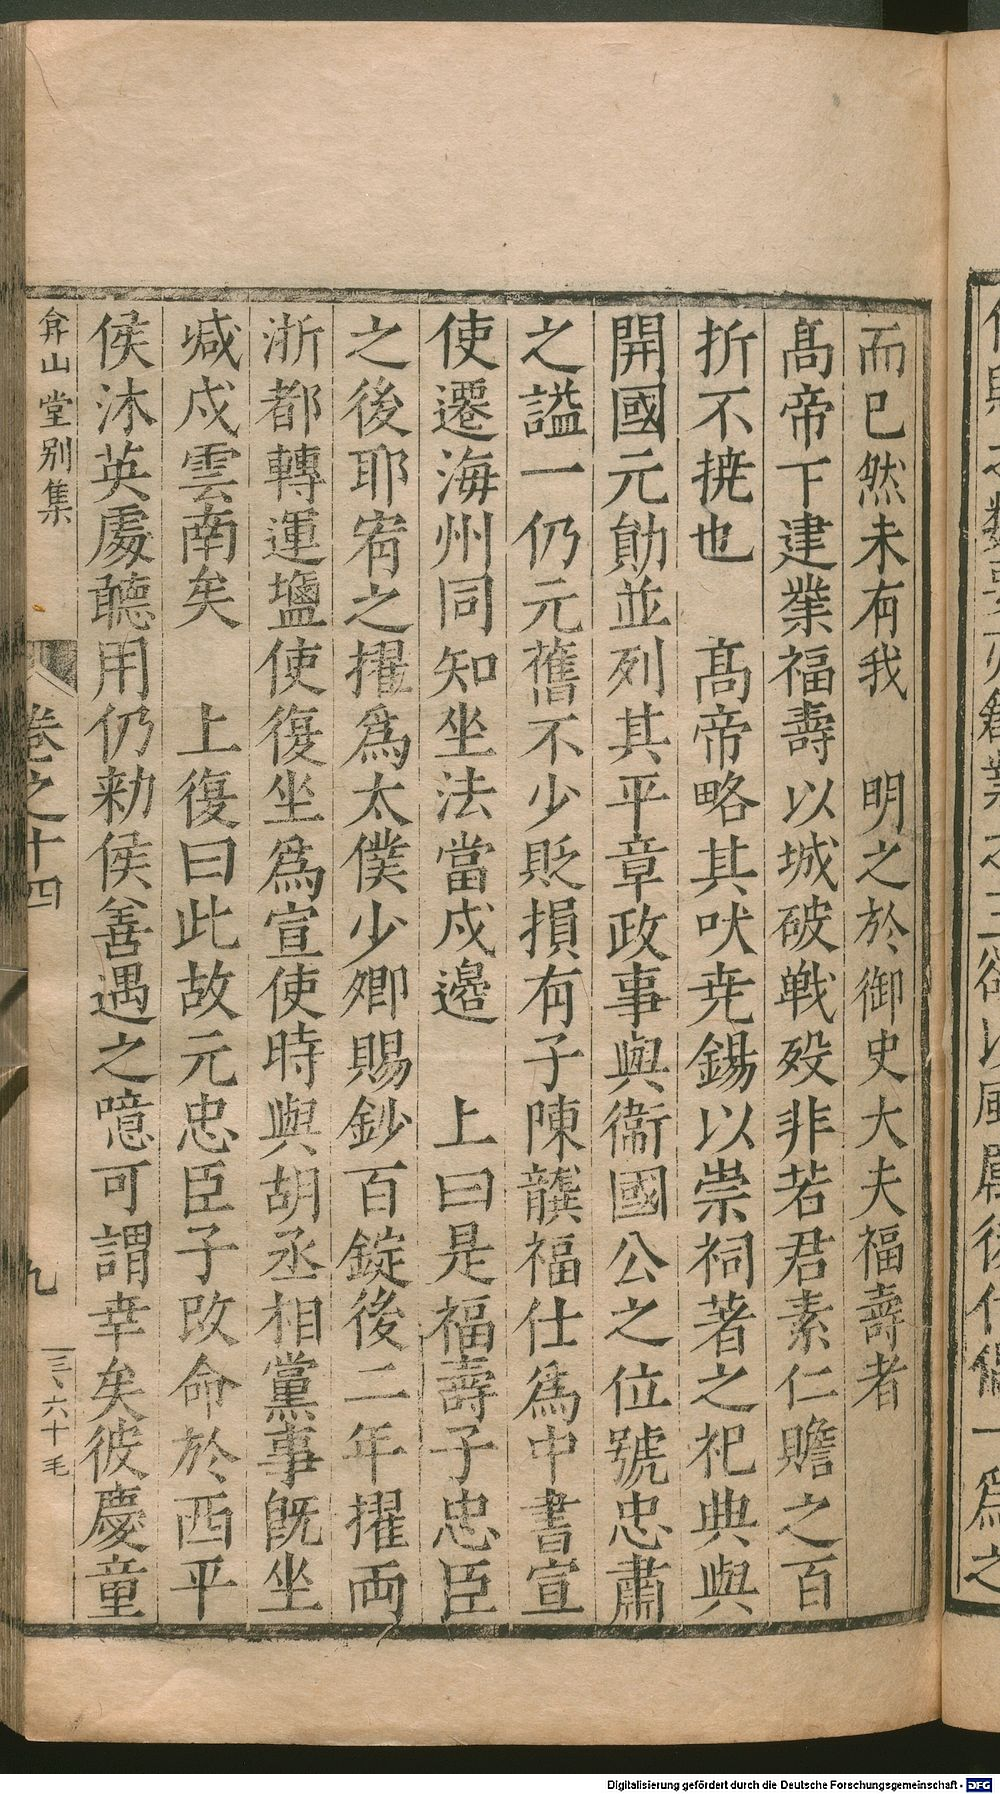 而已然未有我　明之於御史大夫福壽者
髙帝下建業福壽以城破戰歿非若君素仁贍之百
折不撓也　髙帝略其吠尭錫以崇祠著之祀典與
開國元勛並列其平章政事與衞國公之位號忠肅
之謚一仍元舊不少貶損有子陳龔福仕爲中書宣
使遷海州同知坐法當戍邊　上曰是福壽子忠臣
之後耶宥之擢爲太僕少卿賜鈔百錠後二年擢両
浙都轉運鹽使復坐爲宣使時與胡丞相黨事旣坐
㓕戍雲南矣　上復曰此故元忠臣子改命於西平
侯沐英處聽用仍勑侯善遇之噫可謂幸矣彼慶童
弇山堂别集
卷之十四
九
三、六十毛
Digitalisierung gefördert durch die Deutsche Forschungsgemeinschaft - DFG